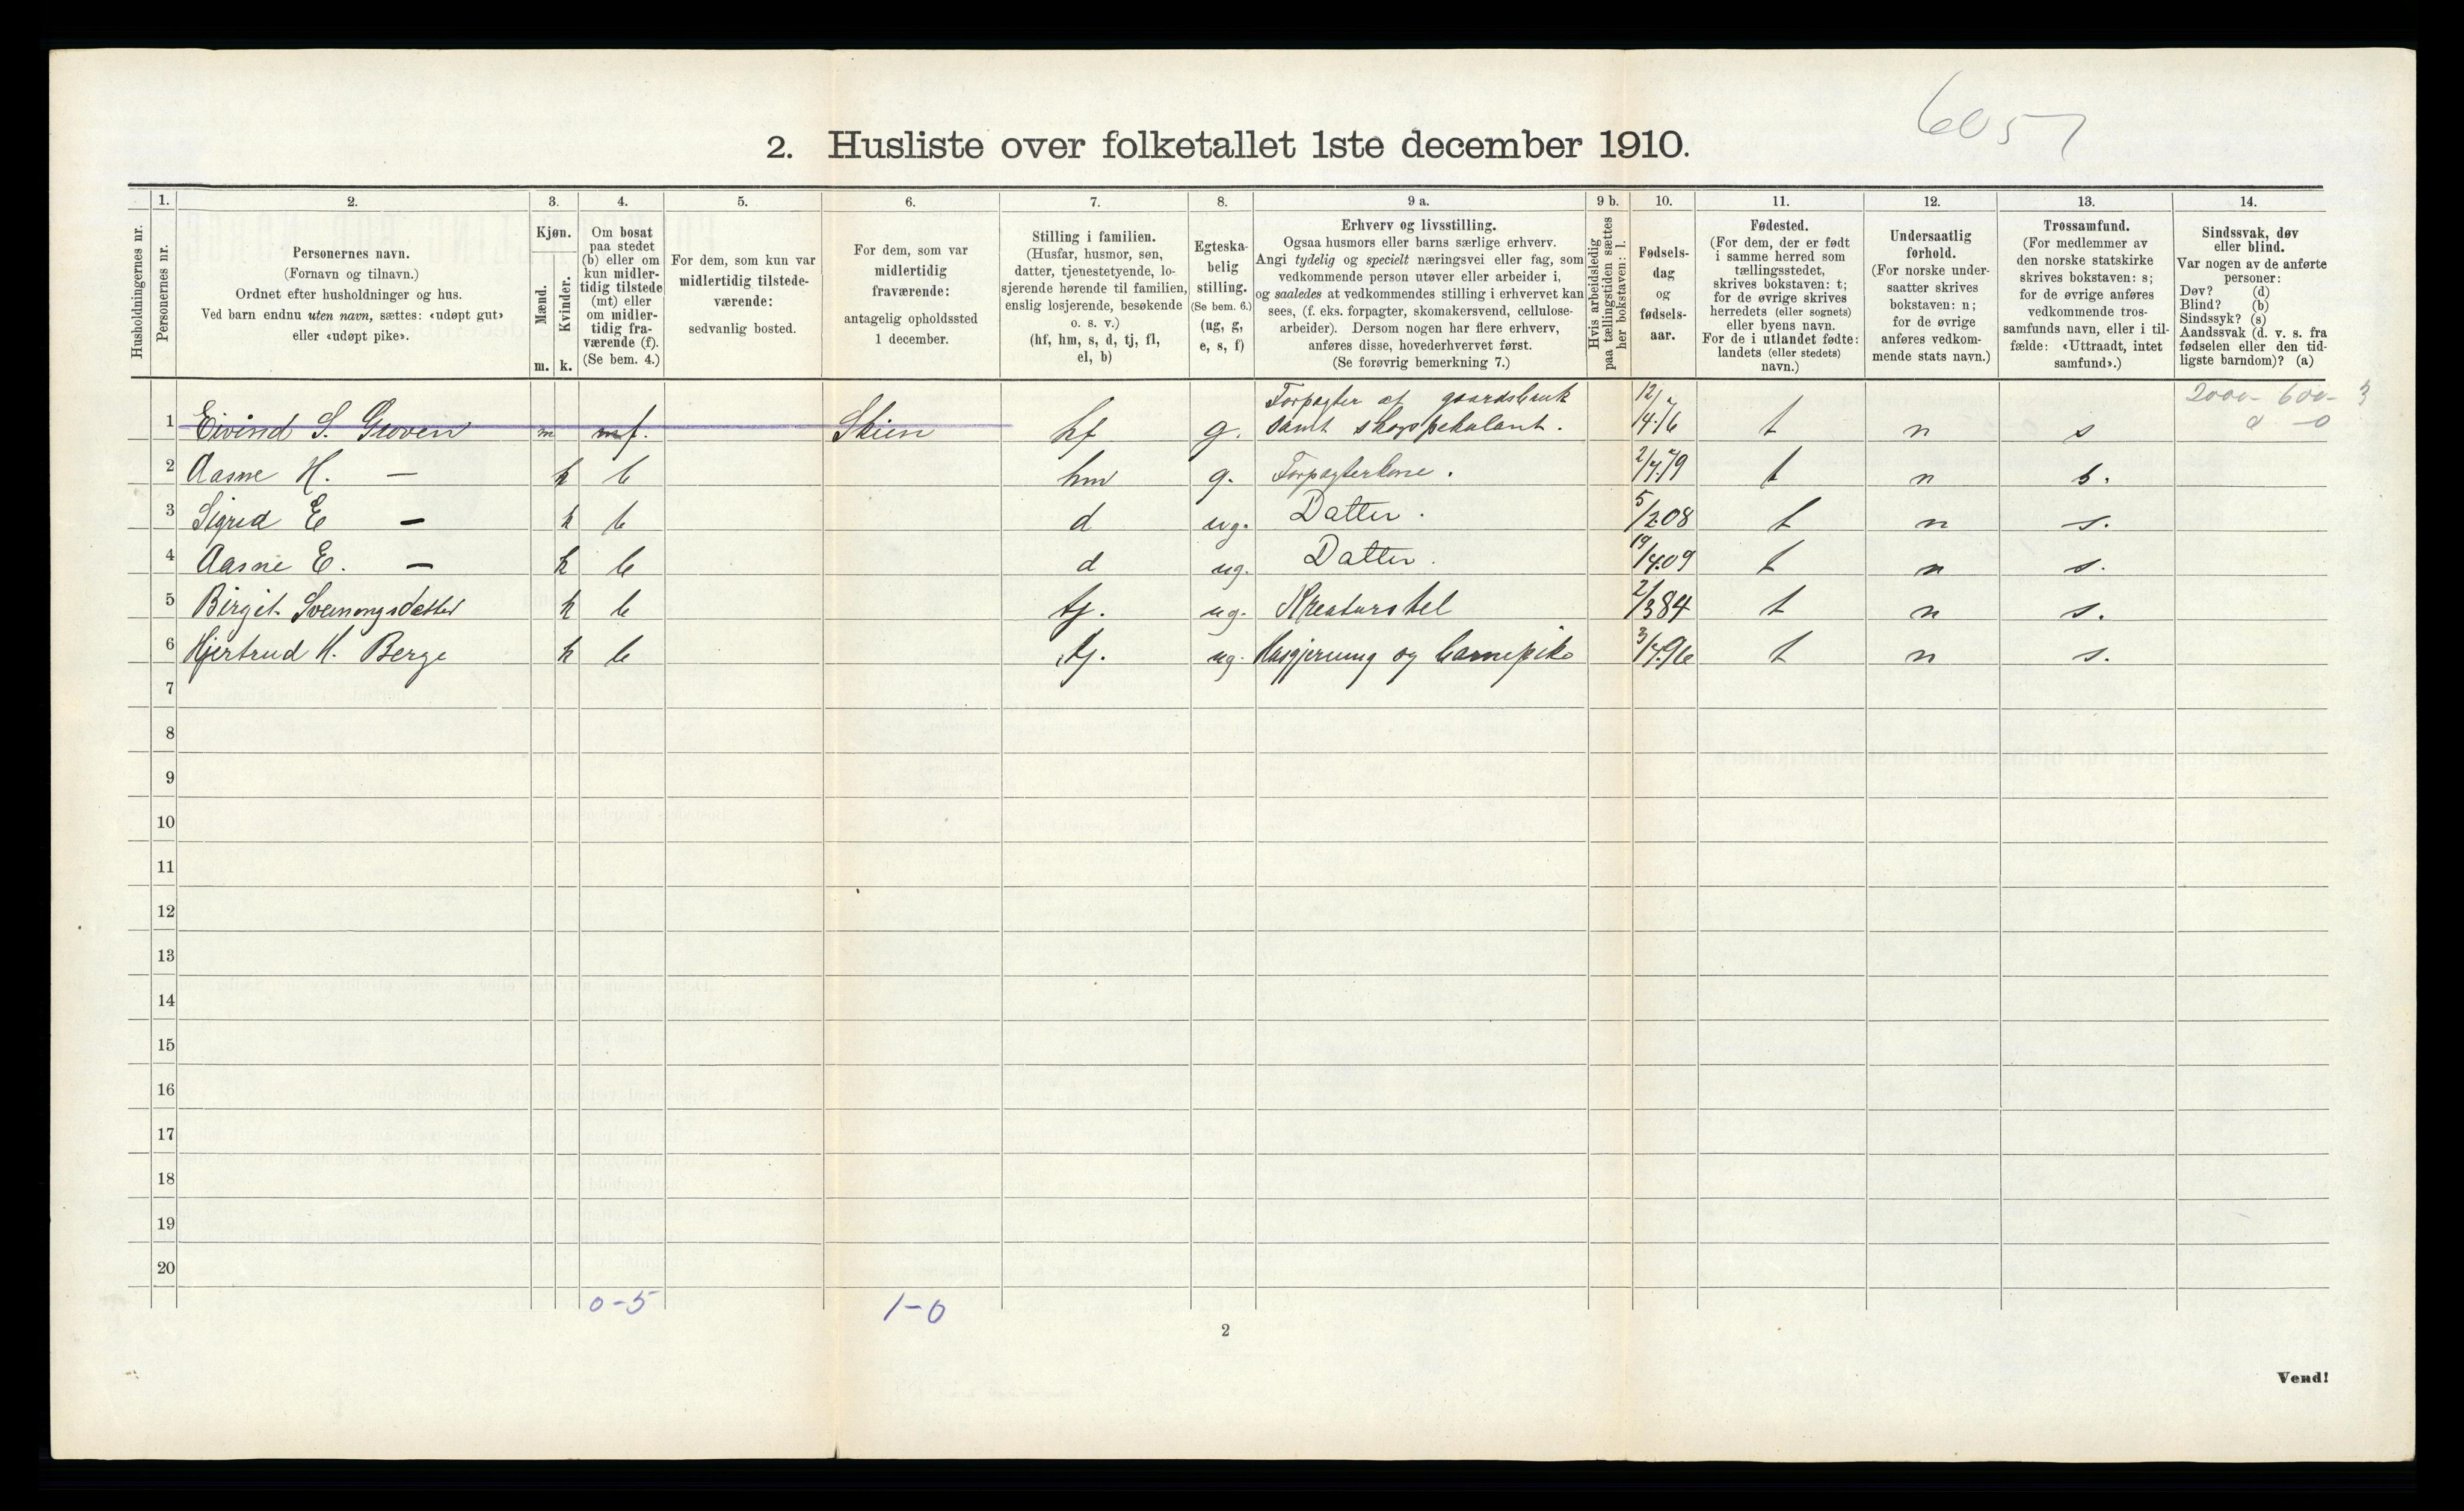 6057
2. Husliste over folketallet 1ste december 1910.
Husholdningernes nr.
1.
Personernes nr.
2.
Personernes navn.
(Fornavn og tilnavn.)
Ordnet efter husholdninger og hus.
Ved barn endnu uten navn, sættes: «udøpt gut»
eller «udøpt pike».
3.
Kjøn.
Mænd.
Kvinder.
m. k.
4.
Om bosat
paa stedet
(b) eller om
kun midler-
tidig tilstede
(mt) eller
om midler-
tidig fra-
værende (f).
(Se bem. 4.)
5.
For dem, som kun var
midlertidig tilstede-
værende:
sedvanlig bosted.
6.
For dem, som var
midlertidig
fraværende:
antagelig opholdssted
1 december.
7.
Stilling i familien.
(Husfar, husmor, søn,
datter, tjenestetyende, lo-
sjerende hørende til familien,
enslig losjerende, besøkende
o. s. v.)
(hf, hm, s, d, tj, fl,
el, b)
8.
Egteska-
belig
stilling.
(Se bem. 6.)
(ug, g,
e, s, f)
9 a.
Erhverv og livsstilling.
Ogsaa husmors eller barns særlige erhverv.
Angi tydelig og specielt næringsvei eller fag, som
vedkommende person utøver eller arbeider i,
og saaledes at vedkommendes stilling i erhvervet kan
sees, (f. eks. forpagter, skomakersvend, cellulose-
arbeider). Dersom nogen har flere erhverv,
anføres disse, hovederhvervet først.
(Se forøvrig bemerkning 7.)
9 b.
Hvis arbeidsledig
paa tællingstiden sættes
her bokstaven: l.
10.
Fødsels-
dag
og
fødsels-
aar.
11.
Fødested.
(For dem, der er født
i samme herred som
tællingsstedet,
skrives bokstaven: t;
for de øvrige skrives
herredets (eller sognets)
eller byens navn.
For de i utlandet fødte:
landets (eller stedets)
navn.)
12.
Undersaatlig
forhold.
(For norske under-
saatter skrives
bokstaven: n;
for de øvrige
anføres vedkom-
mende stats navn.)
13.
Trossamfund.
(For medlemmer av
den norske statskirke
skrives bokstaven: s;
for de øvrige anføres
vedkommende tros-
samfunds navn, eller i til-
fælde: «Uttraadt, intet
samfund».)
14.
Sindssvak, døv
eller blind.
Var nogen av de anførte
personer:
Døv? (d)
Blind? (b)
Sindssyk? (s)
Aandssvak (d. v. s. fra
fødselen eller den tid-
ligste barndom)? (a)
Forpagter af gaardsbruk 12/ 2000- 600- 3
1 Eivind S. Groven m f. Skien hf g. samt skogspekulant. 7.76 t n s
2 Aasne H. — k b hm g. Forpagterkone. 2/7.79 t n s.
3 Sigrid E — k b d ug. Datter. 5/2 08 t n s.
4 Aasne E. — k b d ug. Datter. 19/4 09 t n s.
5 Birgit Sveinungsdatter k b tj. ug. Kreaturstel 2/3 84 t n s.
6 Hjertrud K. Berge k b tj. ug. Husgjerning og barnepike 3/7.96 t n s.
7
8
9
10
11
12
13
14
15
16
17
18
19
20
0-5 1-0
2
Vend!